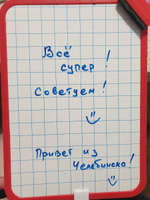 Всё
супер!
Советуем!
Привет из
Челябинска!